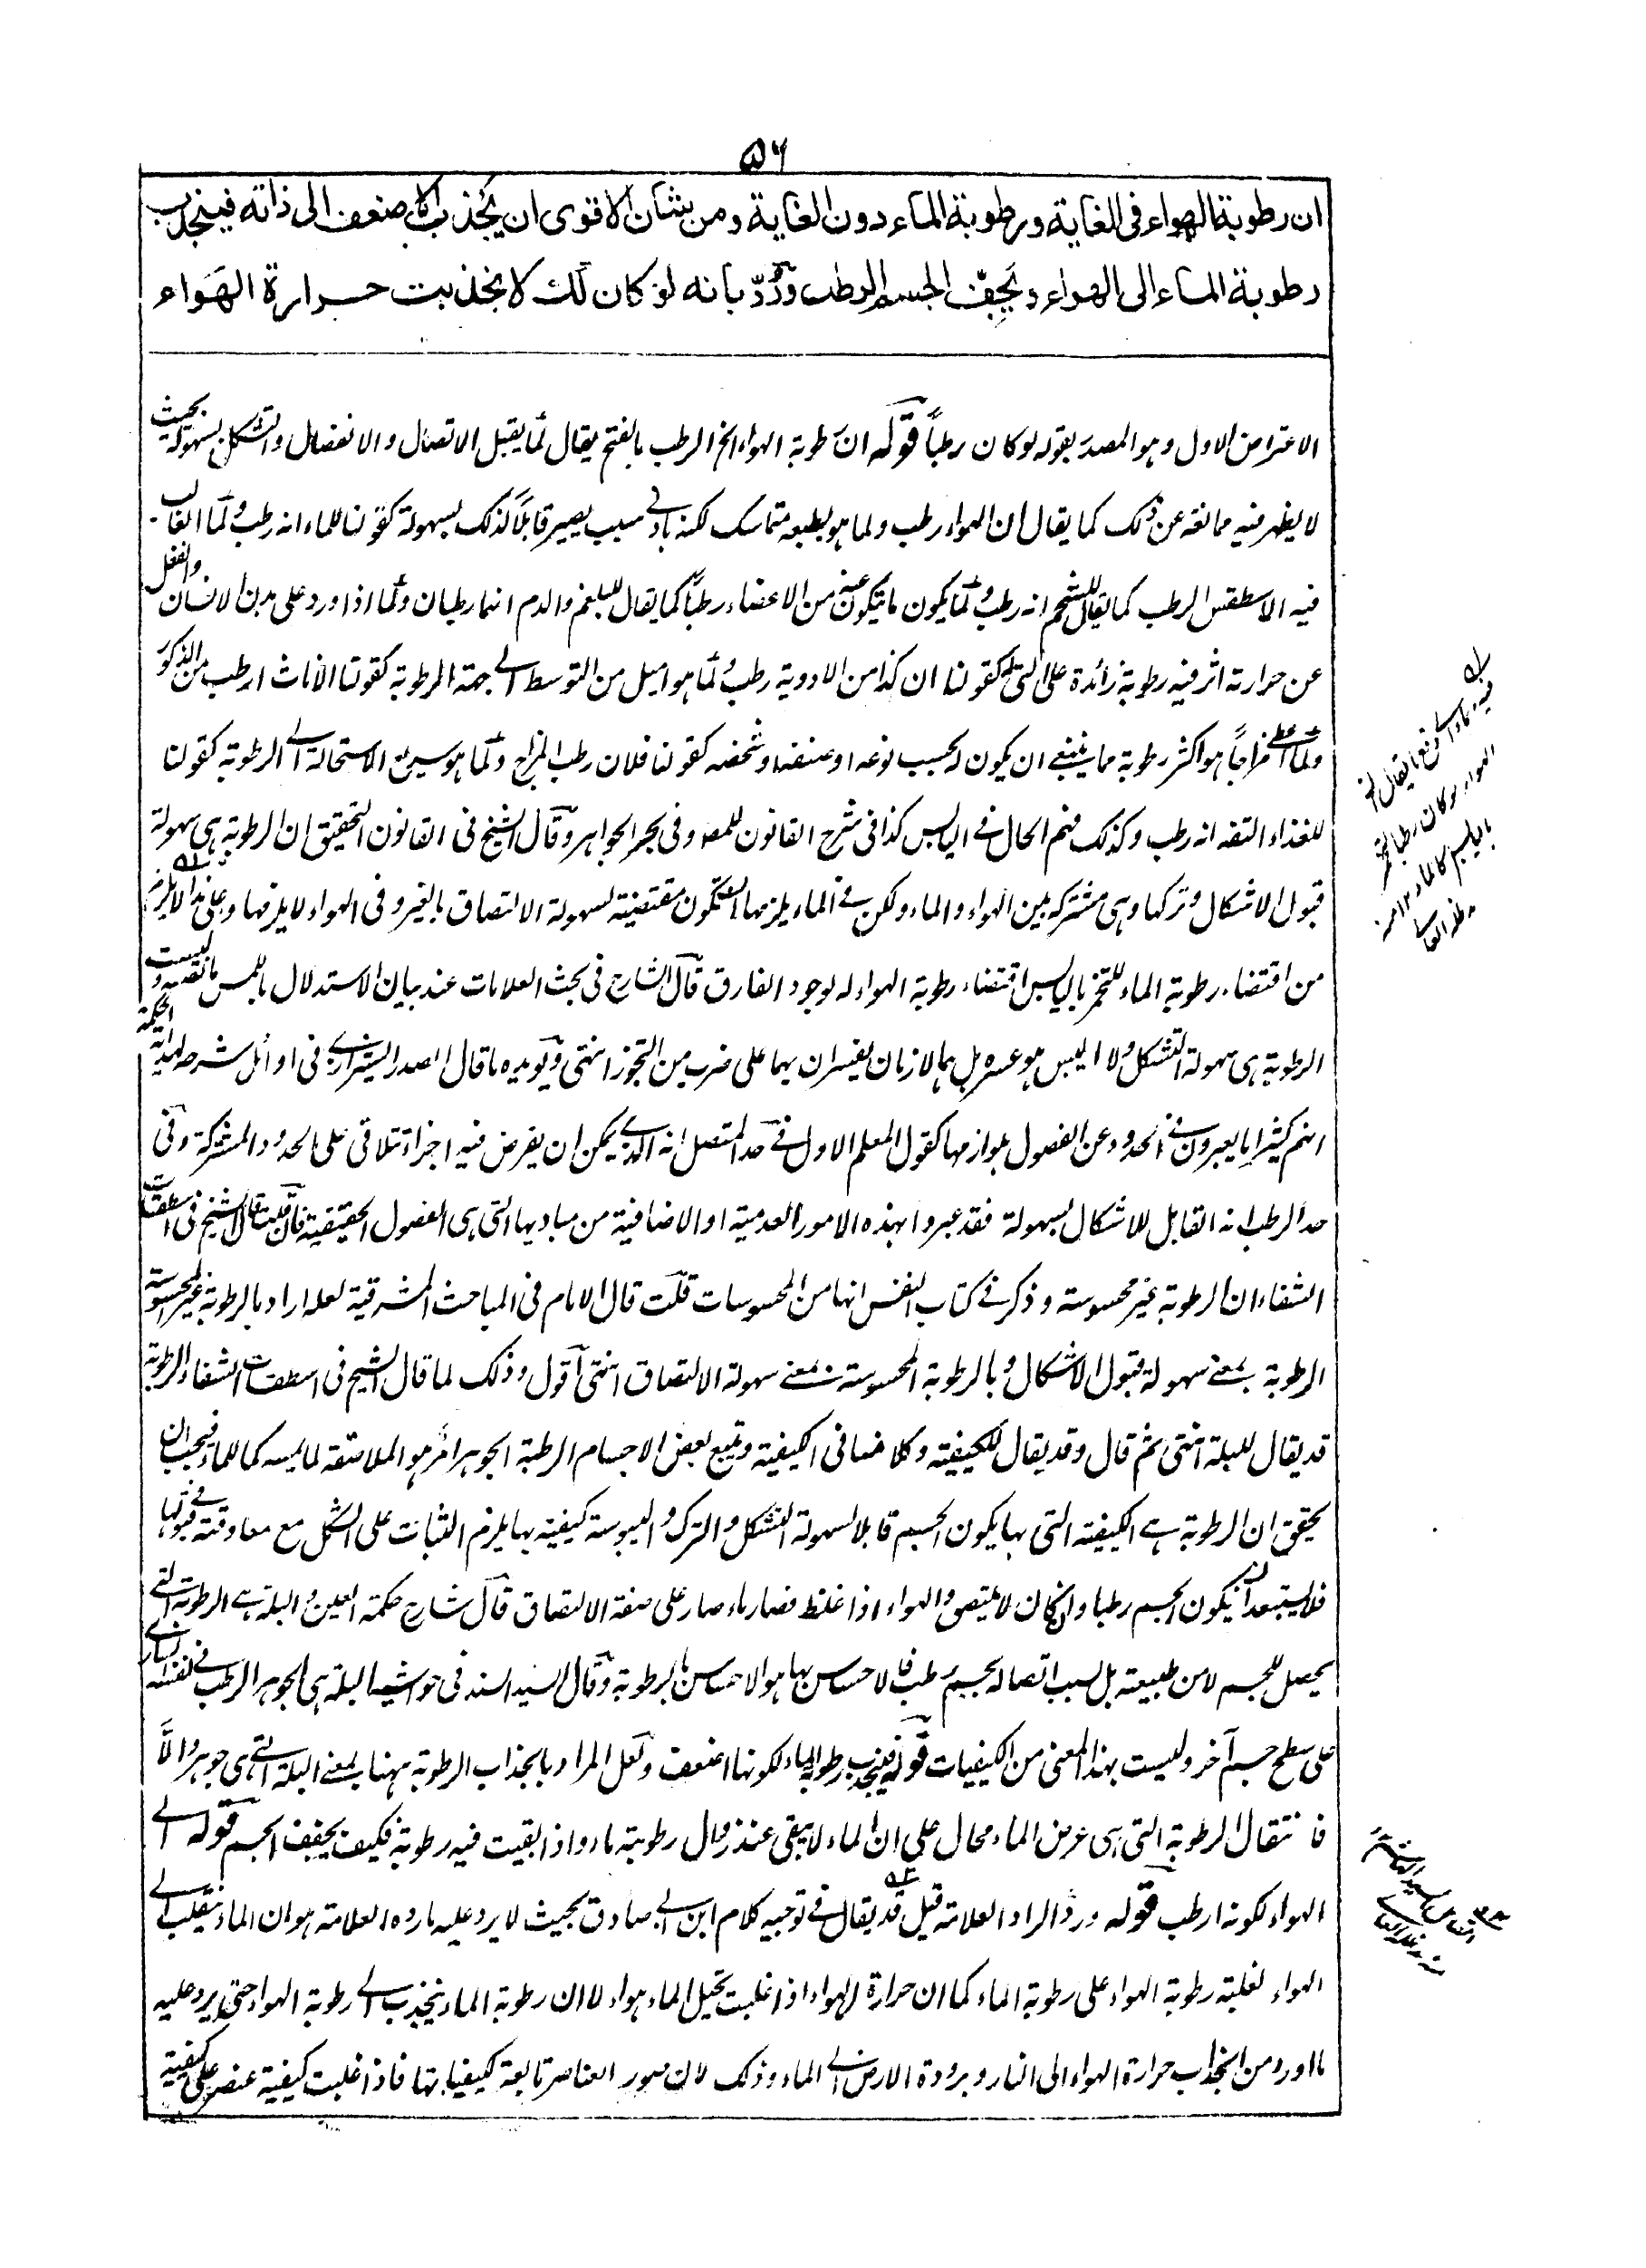 ۵۶
ان رطوبة الهواء فى الغاية ورطوبة الماء دون الغاية ومن شان الاقوى ان يجذب الاضعف الى ذاته فينجذب
رطوبة الماء الى الهواء ويجفّف الجسم الرطب ورُدّ بانه لو كان كذلك لانجذبت حرارة الهَواء
الاعتراض الاول وهو المصدر بقوله لو كان رطباً قوله ان رطوبة الهواء الخ الرطب بالفتح يقال لما يقبل الاتصال والانفصال والتشكل بسهولة بحيث
لا يظهر فيه ممانعة عن ذلك كما يقال ان الهواء رطب ولما هو بطبعه متماسك لكنه بادنى سبب يصير قابلاً لذلك بسهولة كقولنا للماء انه رطب ولما الغالب
فيه الاسطقس الرطب كما يقال للشحم انه رطب ولما يكون ما يتكون عنه من الاعضاء رطباً كما يقال للبلغم والدم انهما رطبان ولما اذا ورد على بدن الانسان وانفعل
عن حرارته اثر فيه رطوبة زائدة على التى له كقولنا ان كذا من الادوية رطب ولما هو اميل من التوسط الى جهة الرطوبة كقولنا الاناث ارطب من الذكور
ولما اعطى مزاجاً هو اكثر رطوبة مما ينبغى ان يكون له بحسب نوعه او صنفه او شخصه كقولنا فلان رطب المزاج ولما هو سريع الاستحالة الى الرطوبة كقولنا
للغذاء التفه انه رطب وكذلك فهم الحال فى اليابس كذا فى شرح القانون للمصر وفى بحر الجواهر وقال الشيخ فى القانون التحقيق ان الرطوبة هى سهولة
قبول الاشكال وتركها وهى مشتركة بين الهواء والماء ولكن فى الماء يلزمها ان تكون مقتضية لسهولة الالتصاق بالغير وفى الهواء لا يلزمها وعلى هذا لا يلزم
من اقتضاء رطوبة الماء للتخمر باليابس اقتضاء رطوبة الهواء له لوجود الفارق قال الشارح فى بحث العلامات عند بيان الاستدلال بالملمس ما نصه وليست
الرطوبة هى سهولة التشكل ولا اليبس هو عسره بل هما لازمان يفسران بهما على ضرب من التجوز انتهى ويؤيده ما قال الصدر الشيرازى فى اوائل شرحه لهداية الحكمة
انهم كثيرا ما يعبرون فى الحدود عن الفصول بلوازمها كقول المعلم الاول فى حد المتصل انه الذى يمكن ان يفرض فيه اجزاء تتلاقى على الحدود المشتركة وفى
حد الرطب انه القابل للاشكال بسهولة فقد عبروا بهذه الامور العدمية او الاضافية من مباديها التى هى الفصول الحقيقية فان قلت قال الشيخ فى اسطقسات
الشفاء ان الرطوبة غير محسوسة وذكر فى كتاب النفس انها من المحسوسات قلت قال الامام فى المباحث المشرقية لعله اراد بالرطوبة غير المحسوسة
الرطوبة بمعنى سهولة قبول الاشكال وبالرطوبة المحسوسة بمعنى سهولة الالتصاق انتهى اقول وذلك لما قال الشيخ فى اسطقسات الشفاء الرطوبة
قد يقال للبلة انتهى ثم قال وقد يقال للكيفية وكلامنا فى الكيفية ويتبع بعض الاجسام الرطبة الجوهر امر هو الملاصقة لما يمسه كما للماء فيجب ان
يحقق ان الرطوبة هى الكيفية التى بها يكون الجسم قابلا لسهولة التشكل والترك واليبوسة كيفية بها يلزم الثبات على الشكل مع معاوقة فى قبولها
فلا يستبعد ان يكون الجسم رطبا وان كان لا يلتصق والهواء اذا غلظ فصار ماء صار على صفة الالتصاق قال شارح حكمة العين والبلة هى الرطوبة التى
يحصل للجسم لا من طبيعته بل بسبب اتصاله بجسم رطب فالاحساس بها هو الاحساس بالرطوبة وقال السيد السند فى حواشيه البلة هى الجوهر الرطب فى نفسه السارى
على سطح جسم آخر وليست بهذا المعنى من الكيفيات قوله فينجذب رطوبة الماء لكونها اضعف ولعل المراد بانجذاب الرطوبة ههنا بمعنى البلة التى هى جوهر والاّ
فانتقال الرطوبة التى هى عرض الماء محال على ان الماء لا يبقى عند زوال رطوبته ماء واذا بقيت فيه رطوبة فكيف يجفف الجسم قوله الى
الهواء لكونه ارطب قوله ورد الراد العلامة قيل قد يقال فى توجيه كلام ابن ابى صادق بحيث لا يرد عليه ما رده العلامة هو ان الماء ينقلب الى
الهواء لغلبة رطوبة الهواء على رطوبة الماء كما ان حرارة الهواء اذا غلبت تحيل الماء هواء لا ان رطوبة الماء ينجذب الى رطوبة الهواء حتى يرد عليه
ما اورد من انجذاب حرارة الهواء الى النار وبرودة الارض الى الماء وذلك لان صور العناصر تابعة لكيفياتها فاذا غلبت كيفية عنصر على كيفية